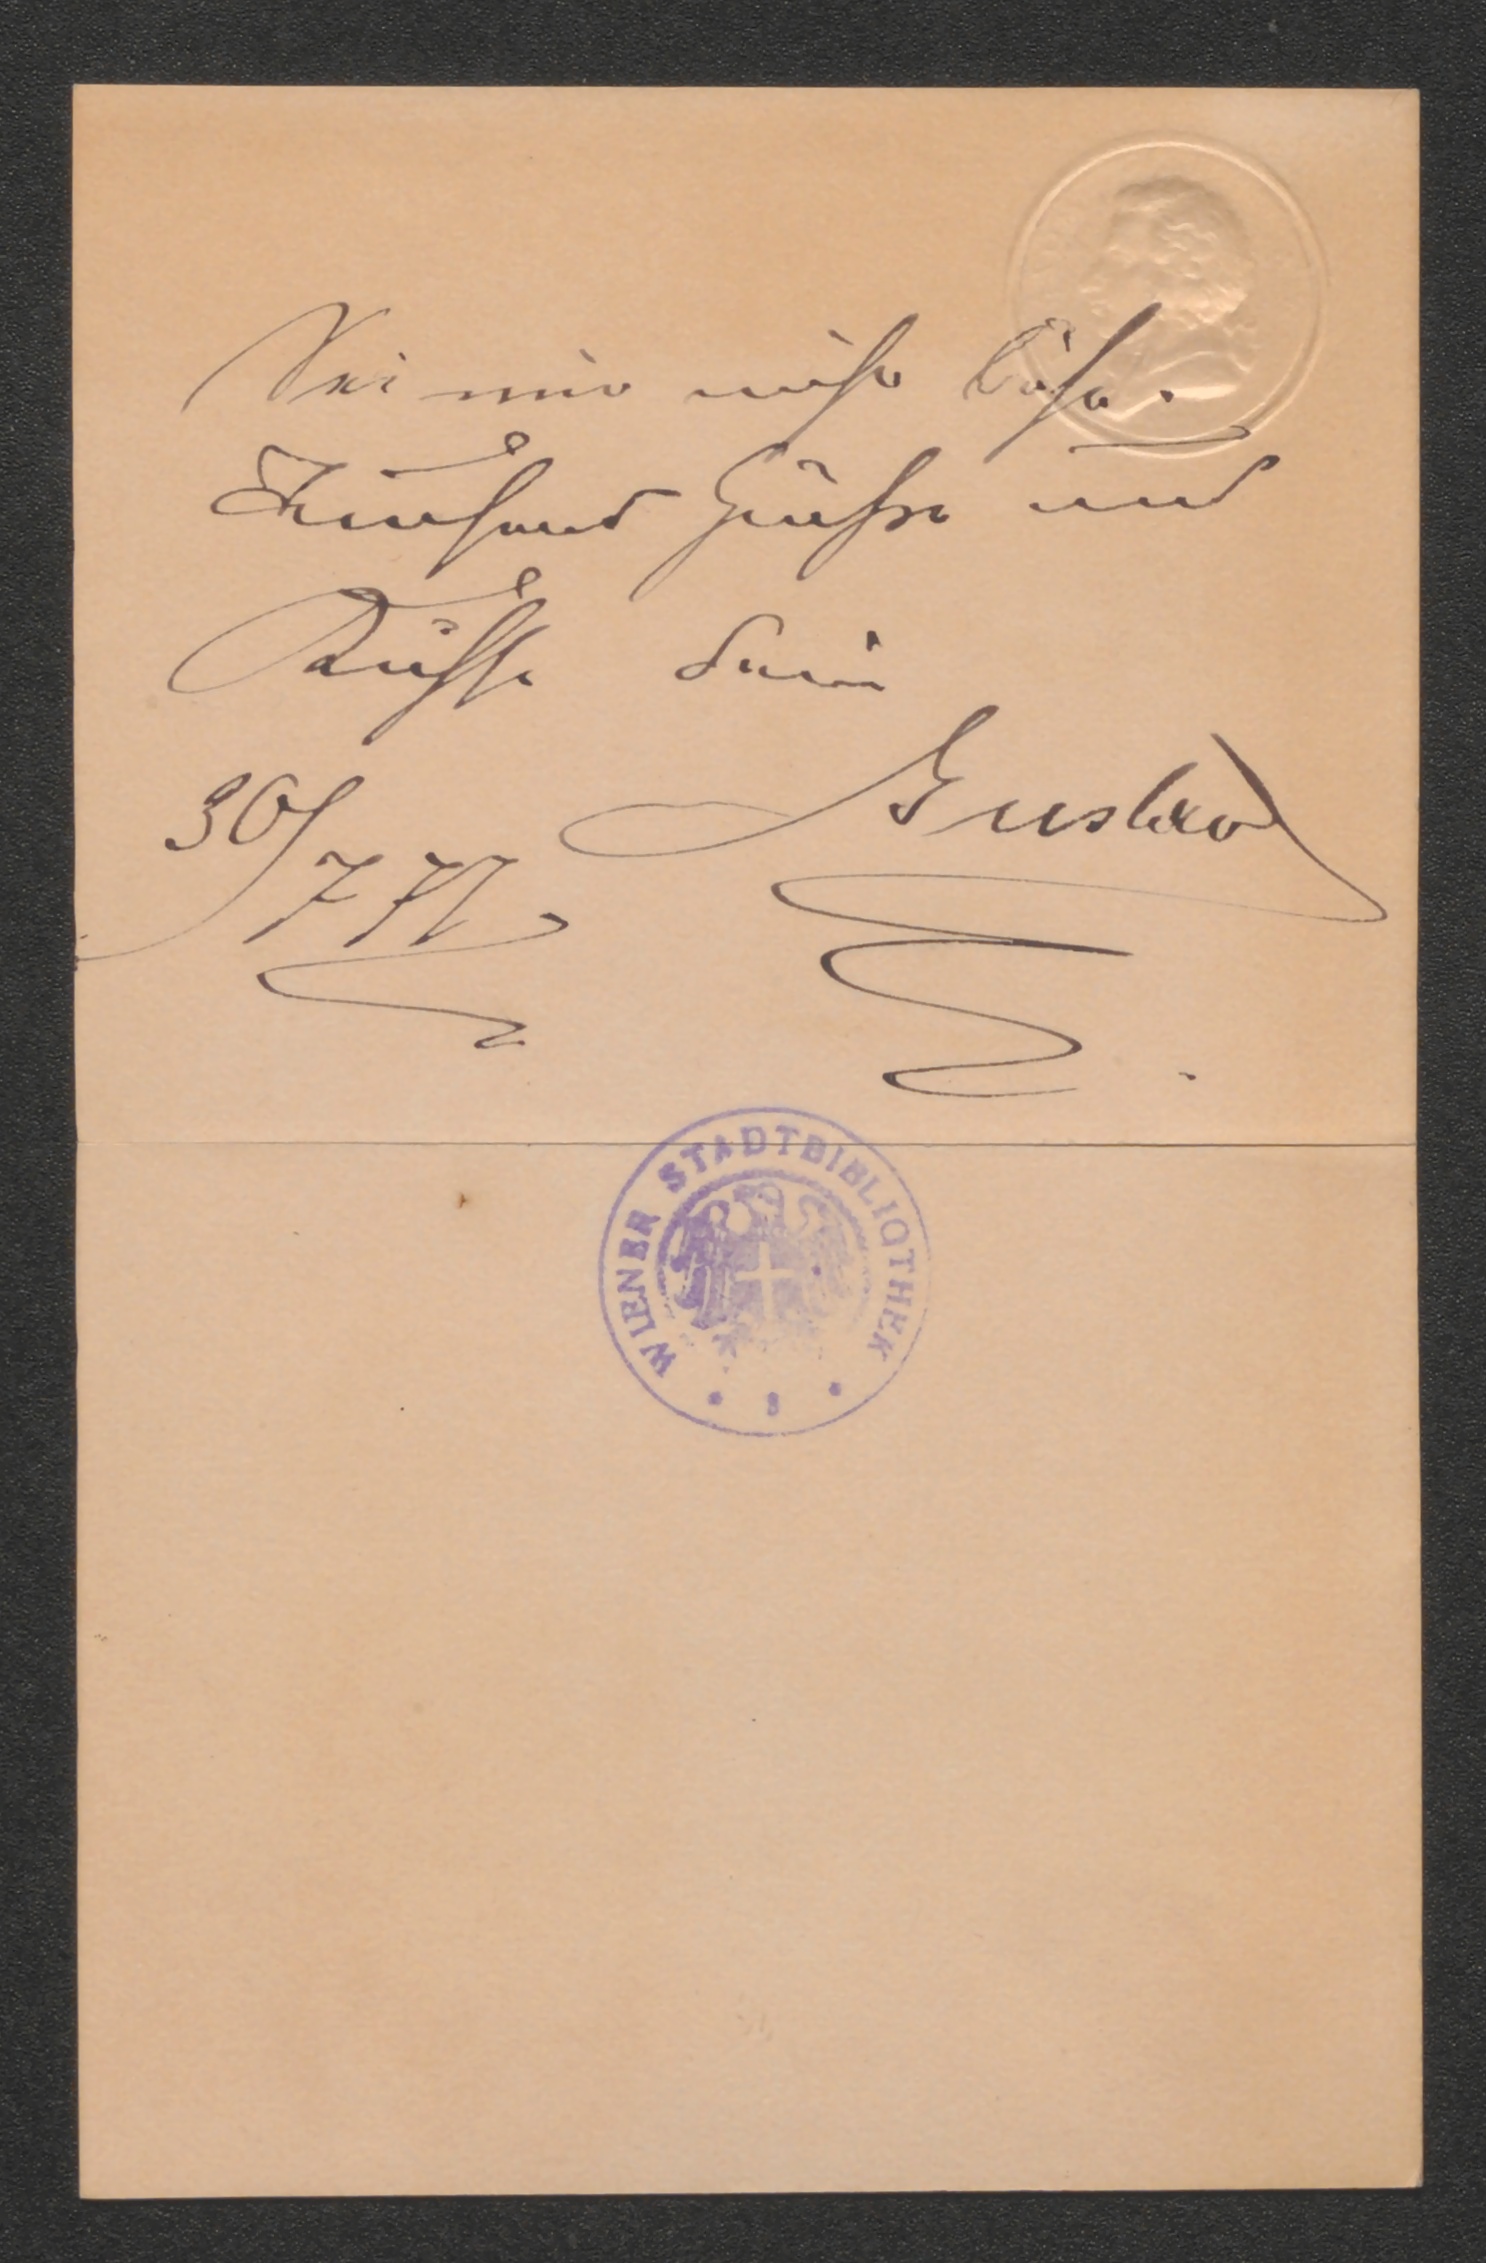 Sei mir nicht böse.
Tausend Grüße und
Küsse dein
Gustav
30/7 77
WIENER STADTBIBLIOTHEK